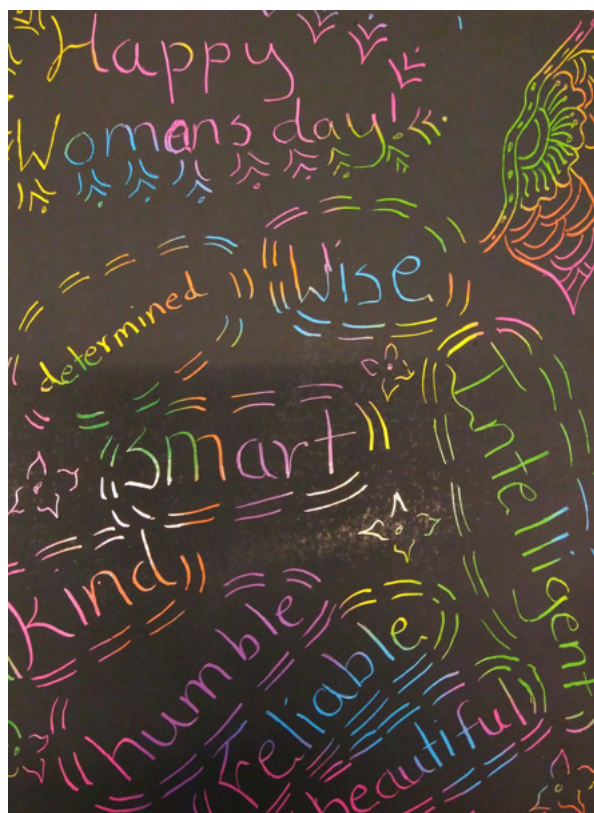 Happy
Womans day!
determined
Wise
Smart
Intelligent
Kind
humble
reliable
beautiful